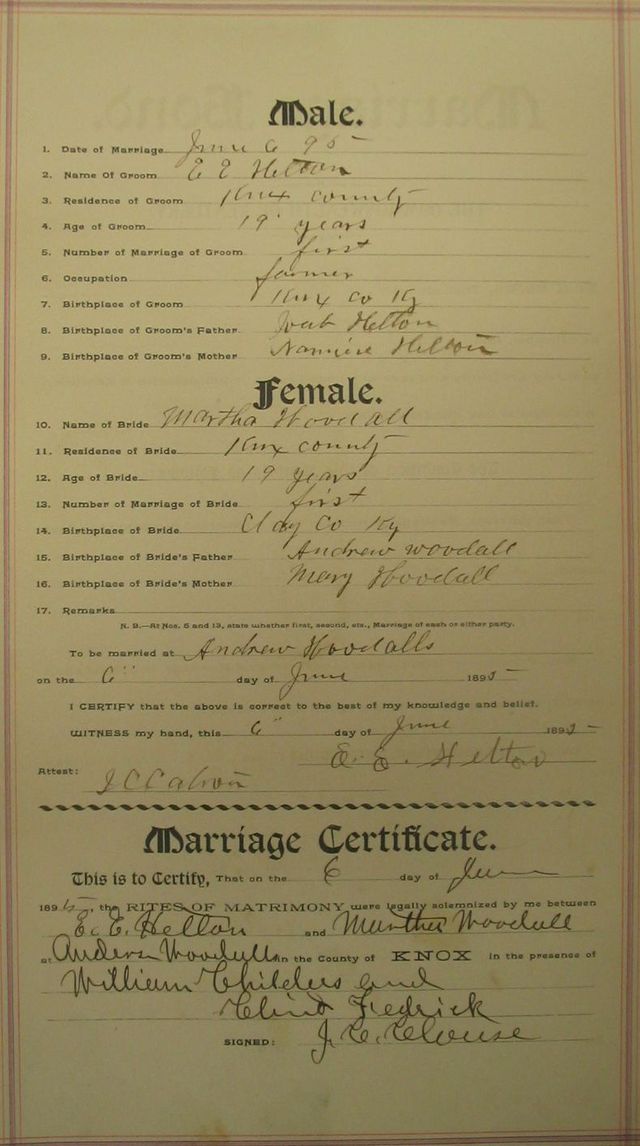 Male.
1. Date of Marriage June 6 95
2. Name Of Groom E E Helton
3. Residence of Groom Knx county
4. Age of Groom 19 years
5. Number of Marriage of Groom first
6. Occupation farmer
7. Birthplace of Groom Knx Co Ky
8. Birthplace of Groom's Father Helton
9. Birthplace of Groom's Mother Helton
Female.
10. Name of Bride Martha Woodall
11. Residence of Bride Knx county
12. Age of Bride 19 years
13. Number of Marriage of Bride first
14. Birthplace of Bride Clay Co Ky
15. Birthplace of Bride's Father Andrew woodall
16. Birthplace of Bride's Mother Mary Woodall
17. Remarks
N. B.—At Nos. 5 and 13, state whether first, second, etc., Marriage of each or either party.
To be married at Andrew Woodalls
on the 6" day of June 1895
I CERTIFY that the above is correct to the best of my knowledge and belief.
WITNESS my hand, this 6" day of June 1895
E. E. Helton
Attest: J C
Marriage Certificate.
This is to Certify, That on the 6 day of June
1895, the RITES OF MATRIMONY were legally solemnized by me between
E. E. Helton and Martha Woodall
at Woodall in the County of KNOX in the presence of
William Childers and
Clint Fedrick
SIGNED: J. C. Clouse